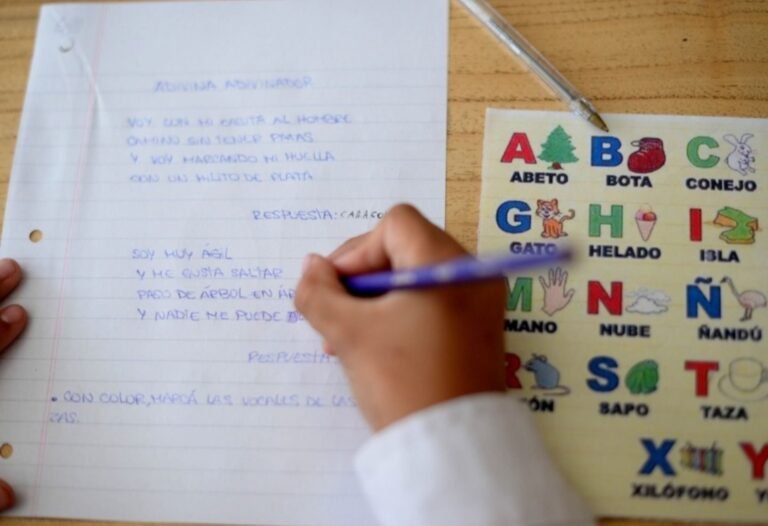 ADIVINA ADIVINADOR
VOY CON MI CASITA AL HOMBRE
CAMINO SIN TENER PATAS
Y VOY MARCANDO MI HUELLA
CON UN HILITO DE PLATA
RESPUESTA: CARACO
SOY MUY ÁGIL
Y ME GUSTA SALTAR
PASO DE ÁRBOL EN ÁR
Y NADIE ME PUEDE
RESPUESTA
• CON COLOR, MARCÁ LAS VOCALES DE LAS
ZAS.
A B C
ABETO BOTA CONEJO
G H I
GATO HELADO ISLA
M N Ñ
MANO NUBE ÑANDÚ
R S T
TÓN SAPO TAZA
X Y
XILÓFONO Y